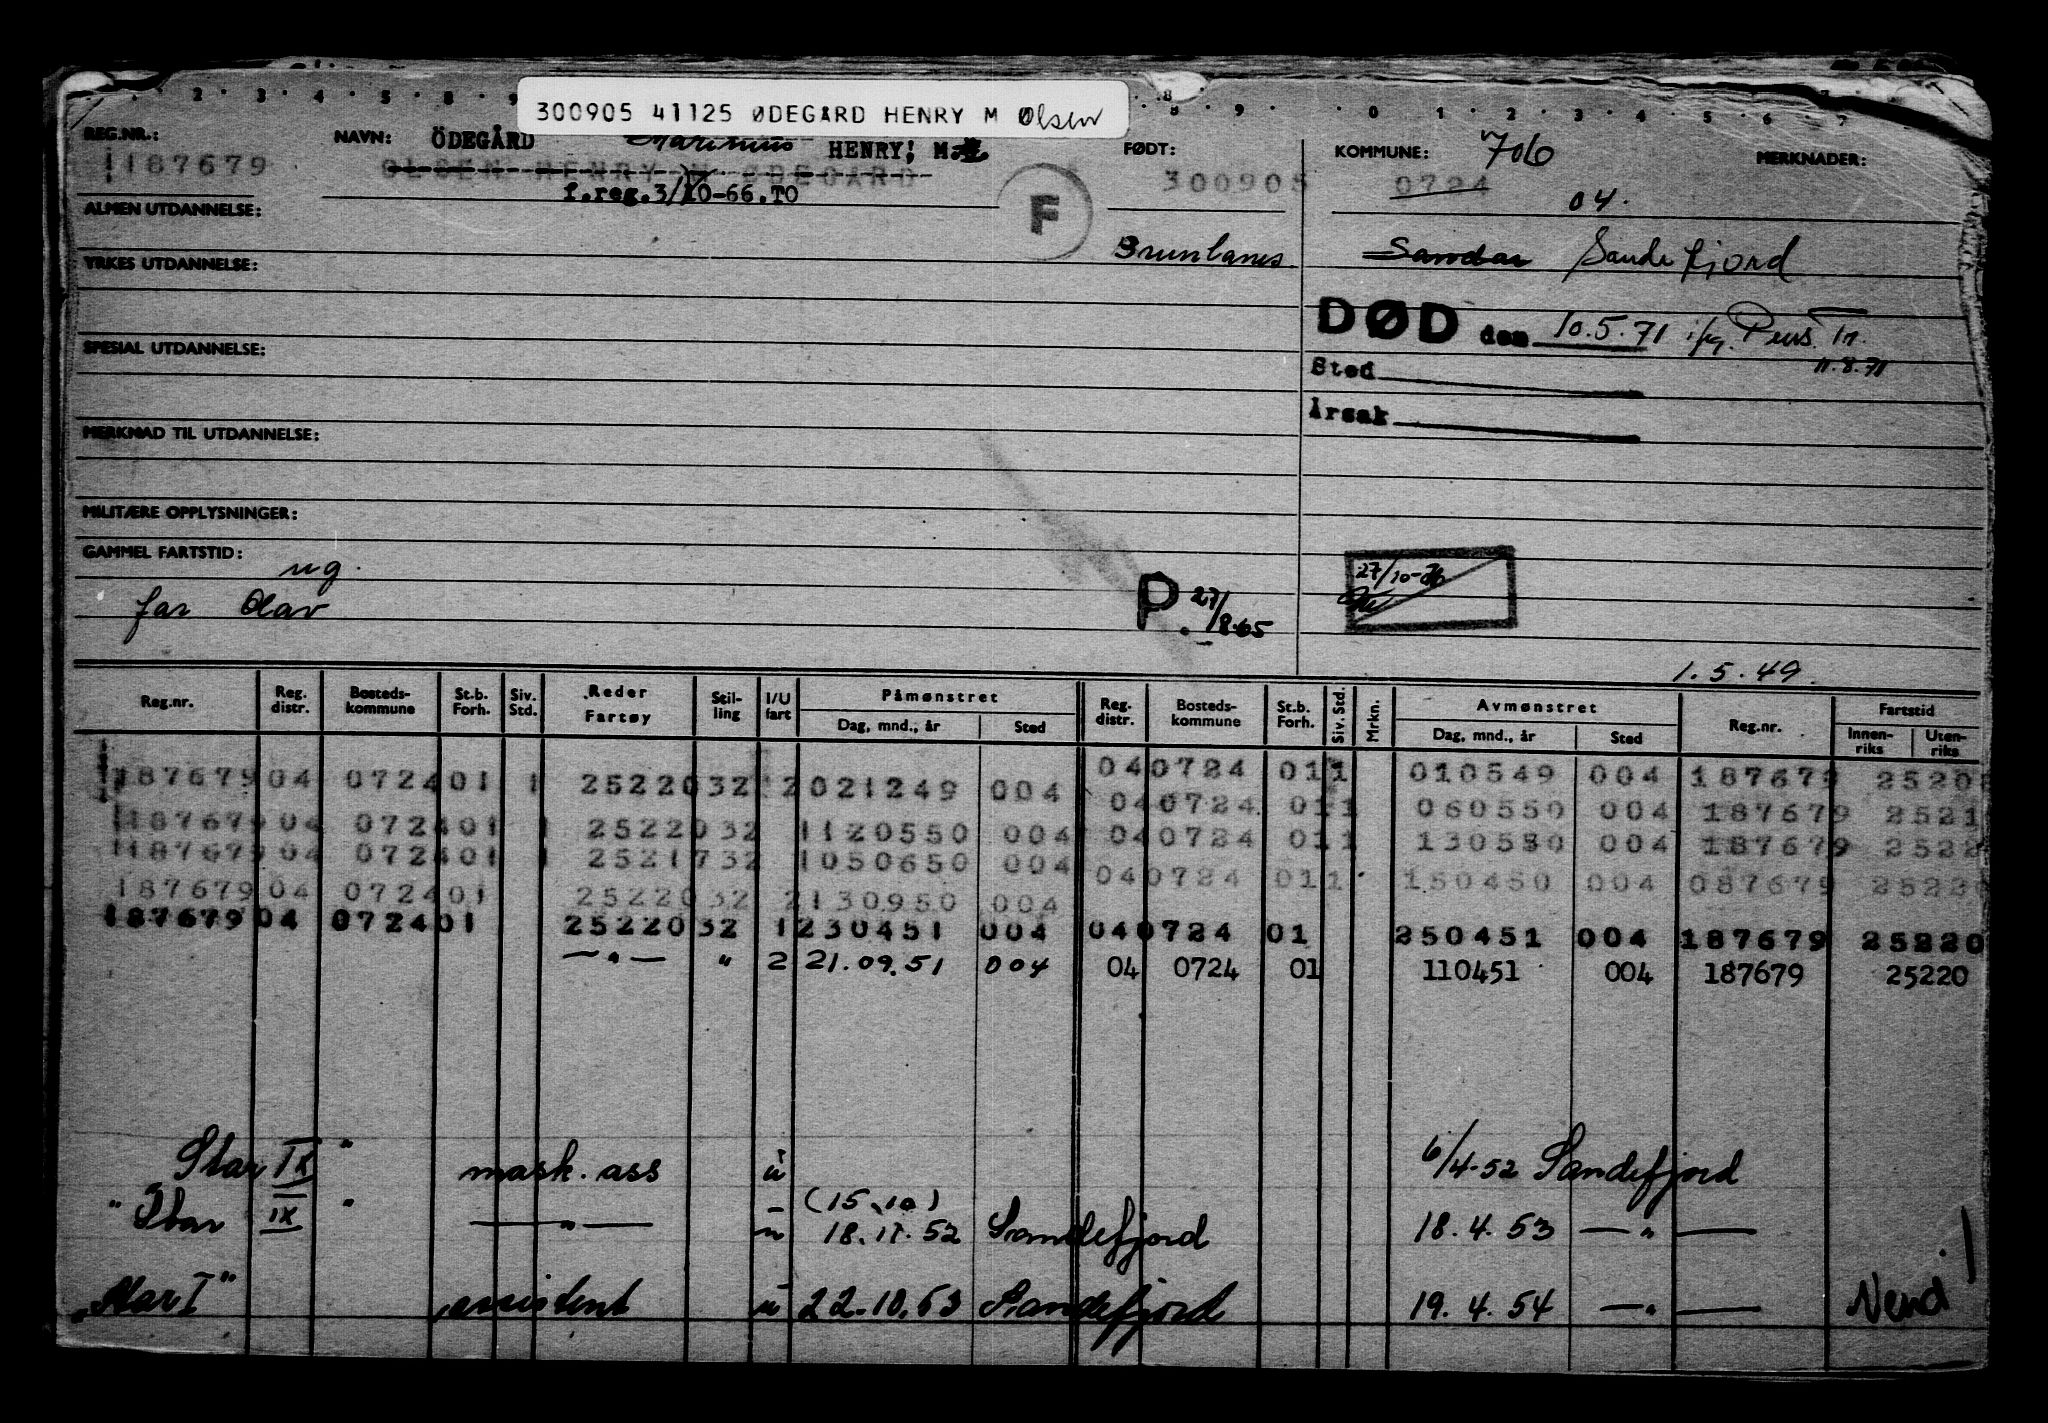 300905 41125 ØDEGÅRD HENRY M Olsen
REG.NR.: 187679 NAVN: ÖDEGÅRD Marinius HENRY, M. FØDT: 300905 KOMMUNE: 706 MERKNADER:
OLSEN HENRY M ODEGARD 0724
f.reg.3/10-66.TO F 04.
ALMEN UTDANNELSE:
Brunlanes Sandar Sandefjord
YRKES UTDANNELSE:
DØD den 10.5.71 ifg. Pens. Tr.
11.8.71
SPESIAL UTDANNELSE:
Sted
Årsak
MERKNAD TIL UTDANNELSE:
MILITÆRE OPPLYSNINGER:
GAMMEL FARTSTID:
ug.
far Olav P. 27/8-65 27/10-
1.5.49.
Reg.nr. Reg. distr. Bosteds-kommune St.b. Forh. Siv. Std. Reder Fartøy Stil-ling I/U fart Påmønstret Dag, mnd., år Sted Reg. distr. Bosteds-kommune St.b. Forh. Siv. Std. Mrkn. Avmønstret Dag, mnd., år Sted Reg.nr. Fartstid Innen-riks Uten-riks
187679 04 0724 01 1 25220 32 2 021249 004 04 0724 01 1 010549 004 187679 2520
04 0724 01 1 060550 004 187679 2521
187679 04 0724 01 1 25220 32 1 120550 004 04 0724 01 1 130550 004 187679 2522
187679 04 0724 01 1 25217 32 1 050650 004
04 0724 01 1 150450 004 087679 2522
187679 04 0724 01 25220 32 2 130950 004
187679 04 0724 01 25220 32 1 230451 004 04 0724 01 250451 004 187679 25220
— " — " 2 21.09.51 004 04 0724 01 110451 004 187679 25220
Star IX " mask. ass u 6/4-52 Sandefjord
(15.10)
" Star IX " — " — u 18.11.52 Sandefjord 18.4.53 — " —
"Star I" assistent u 22.10.53 Sandefjord 19.4.54 — " — Vend!